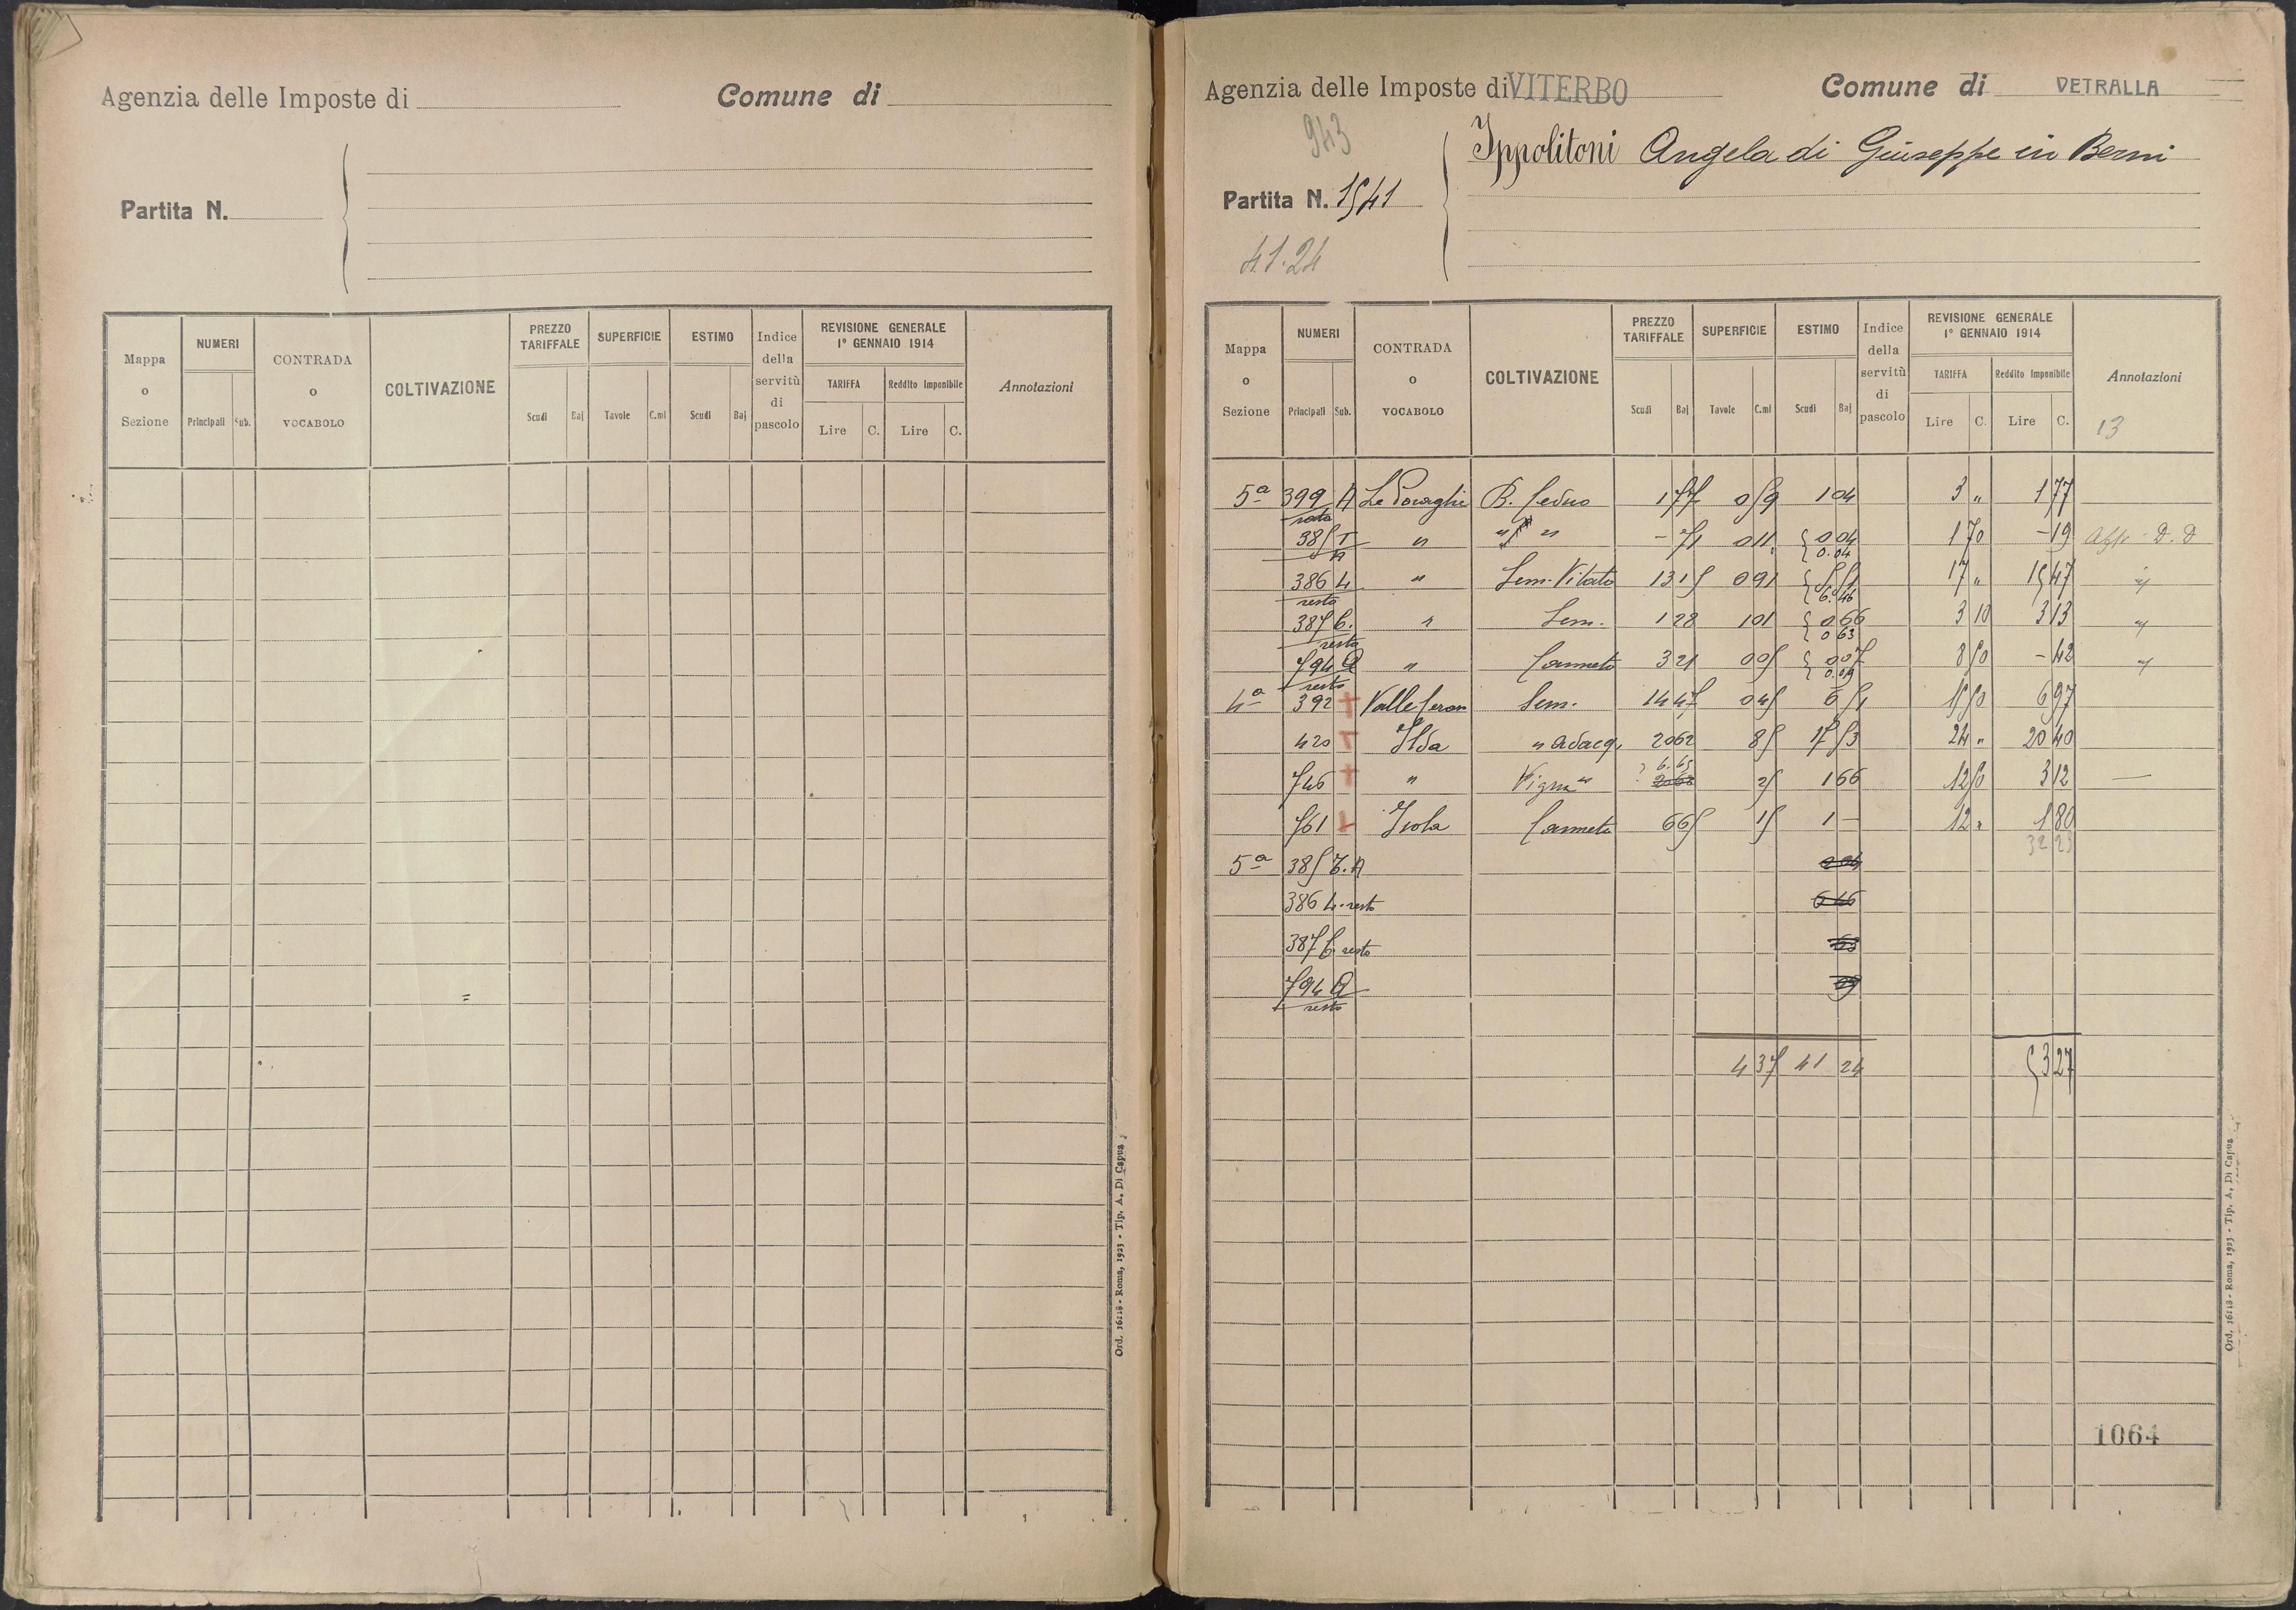 Agenzia delle Imposte di
Comune di
Partita N.
Mappa o Sezione
NUMERI
Principali Sub.
CONTRADA o VOCABOLO
COLTIVAZIONE
PREZZO TARIFFALE
Scudi Baj
SUPERFICIE
Tavole C.mi
ESTIMO
Scudi Baj
Indice della servitù di pascolo
REVISIONE GENERALE 1° GENNAIO 1914
TARIFFA
Reddito Imponibile
Lire C. Lire C.
Annotazioni
Ord. 16118 - Roma, 1923 - Tip. A. Di Capua
Agenzia delle Imposte di VITERBO
Comune di VETRALLA
943
Ippolitoni Angela di Giuseppe in Berni
Partita N. 1541
41.24
Mappa o Sezione
NUMERI
Principali Sub.
CONTRADA o VOCABOLO
COLTIVAZIONE
PREZZO TARIFFALE
Scudi Baj
SUPERFICIE
Tavole C.mi
ESTIMO
Scudi Baj
Indice della servitù di pascolo
REVISIONE GENERALE 1° GENNAIO 1914
TARIFFA
Reddito Imponibile
Lire C. Lire C.
Annotazioni
13
5ª 399 A Le B. Ceduo 1 77 0 59 1 04 3 " 1 77
385 " " " - 71 0 11 0 04 1 70 - 19
A 0.04
386 4 " Sem. Vitato 13 15 0 91 17 " 15 47 "
resto 6.46
387 6. " Sem. 1 28 1 01 0 66 3 10 3 13 "
resto 0 63
794 Q " Canneto 3 21 0 05 0 07 8 50 - 42 "
resto 0.09
4ª 392 + Sem. 14 47 0 45 6 51 15 50 6 97
420 " adacq. 20 62 85 17 53 24 " 20 40
6.65
746 " Vigna " 20 62 25 1 66 12 50 3 12 —
761 Isola Canneto 6 65 15 1 — 12 " 1 80
32 23
5ª 385 A 0 04
386 4. resto 6 46
387 6 resto 63
794 Q 09
resto
4 37 41 24 53 27
1064
Ord. 16118 - Roma, 1923 - Tip. A. Di Capua